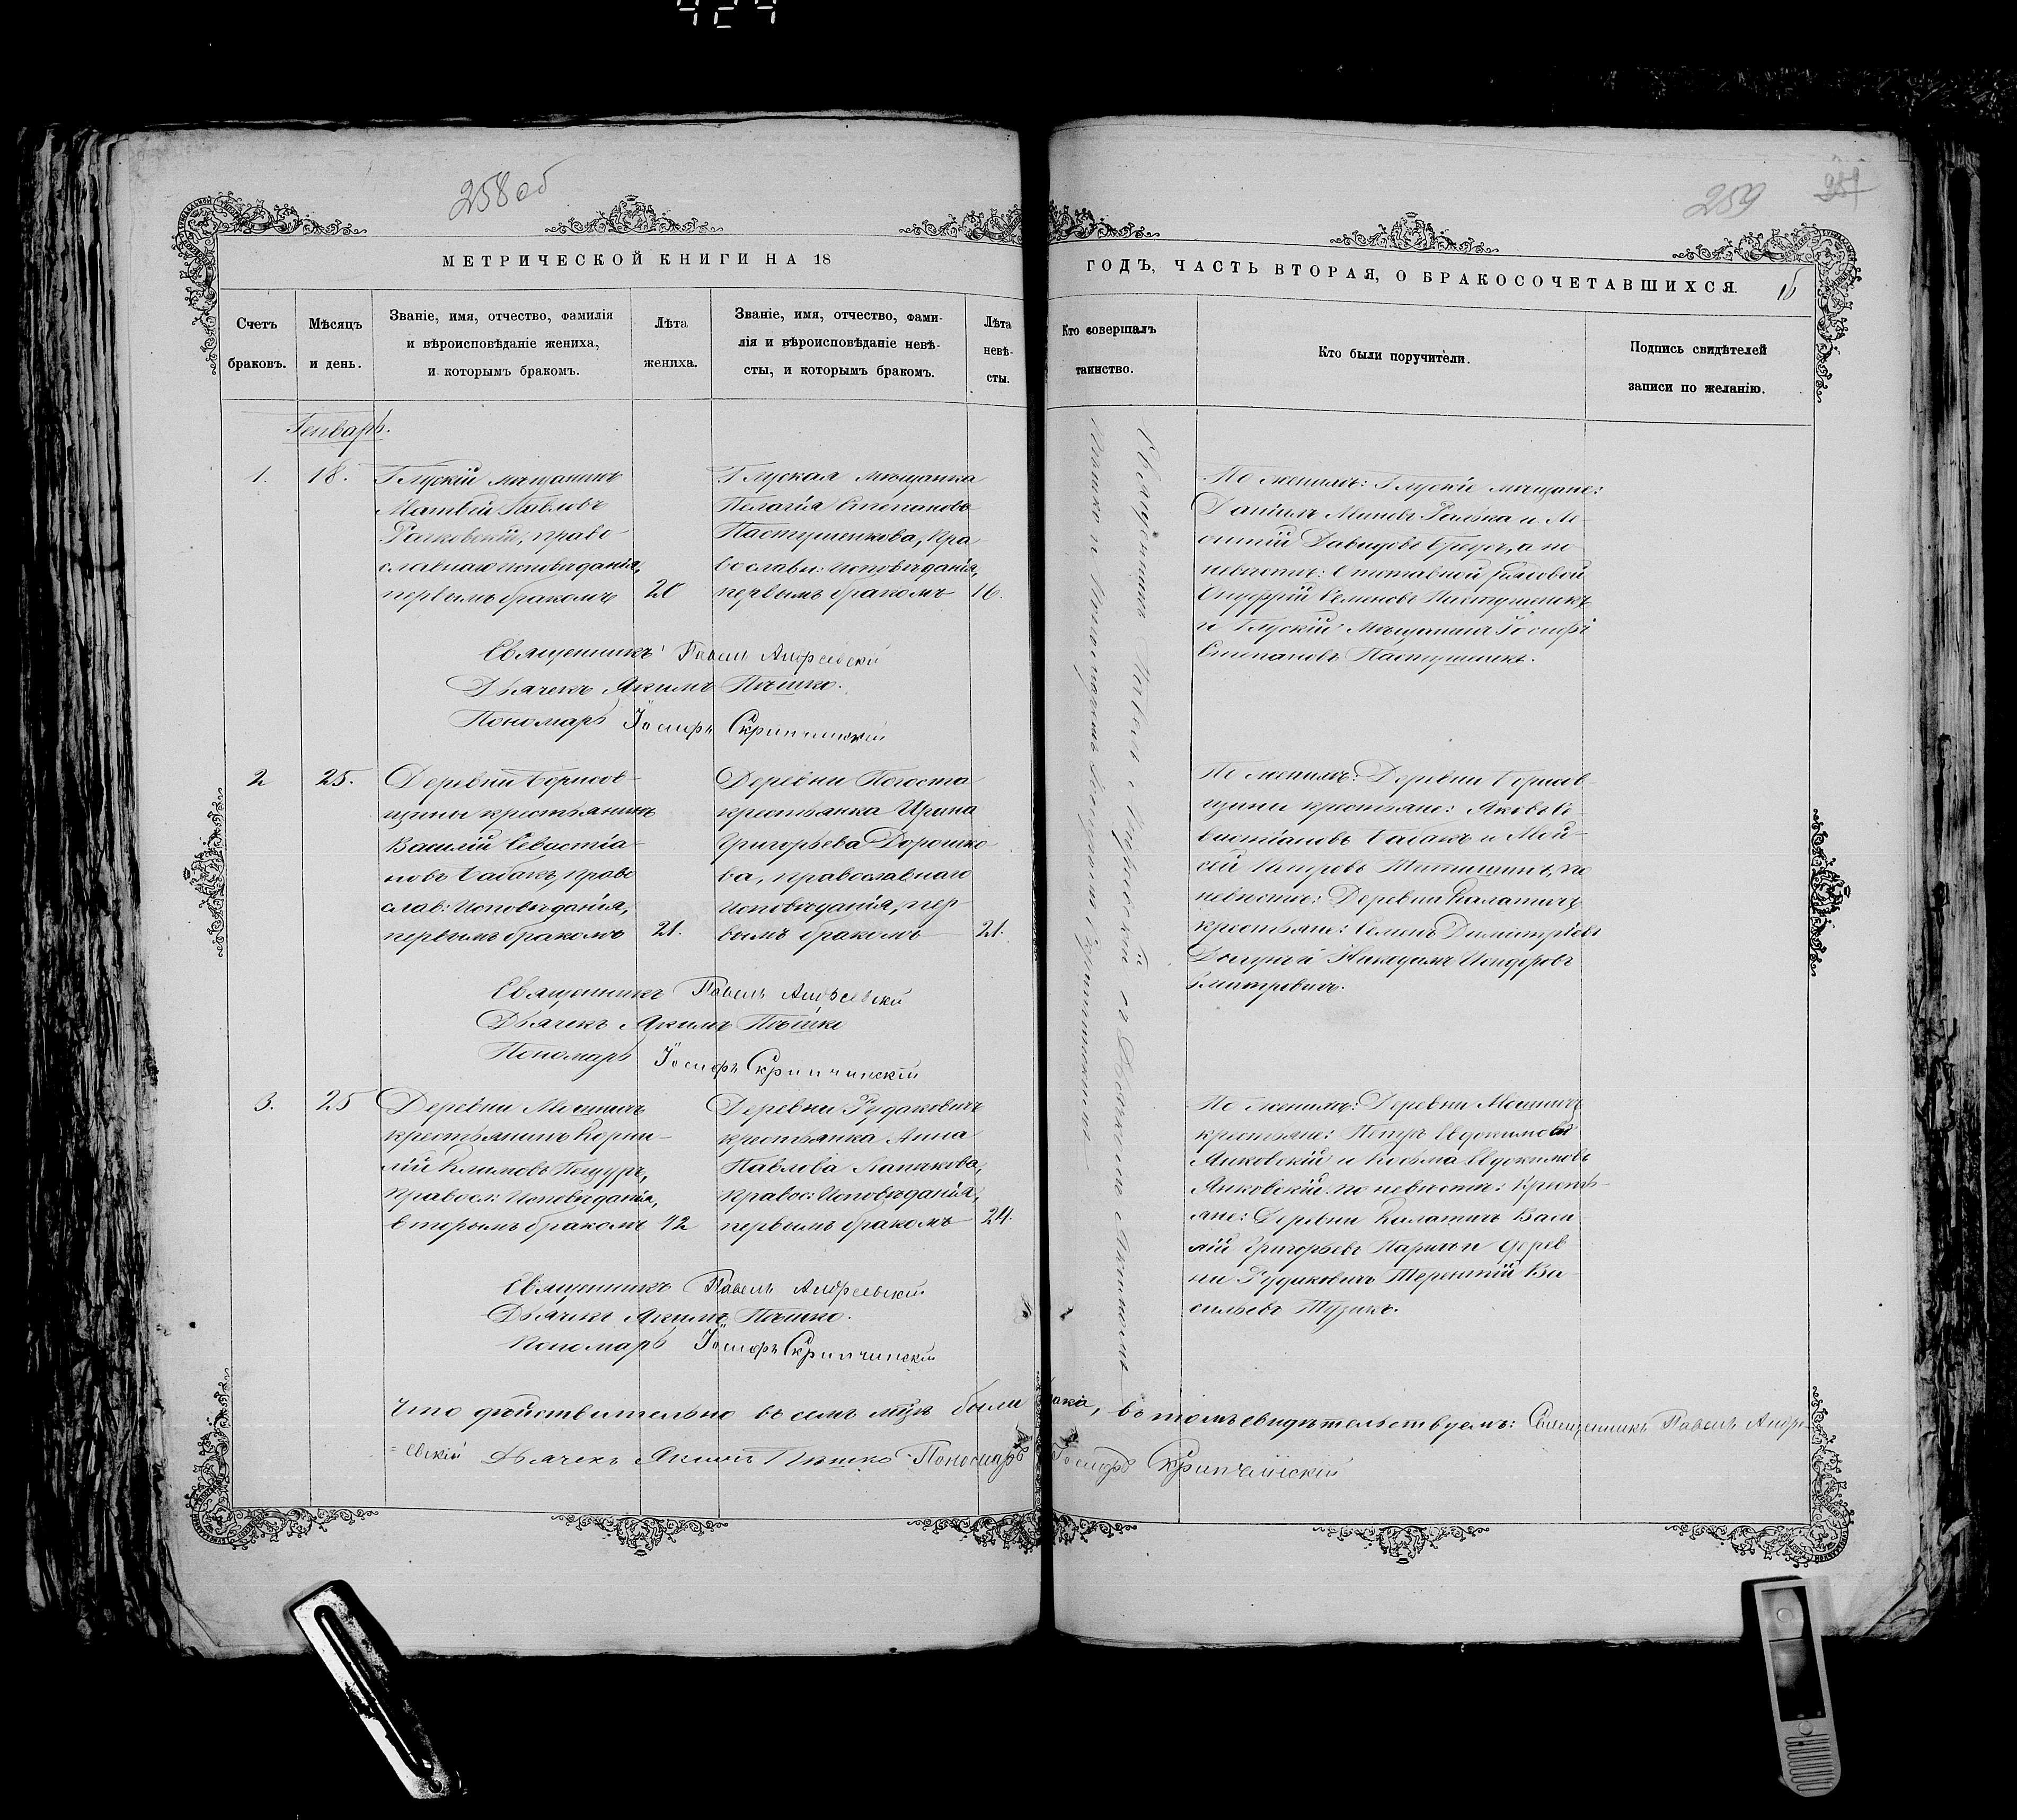 424
258 об
259
МЕТРИЧЕСКОЙ КНИГИ НА 18
ГОДЪ, ЧАСТЬ ВТОРАЯ, О БРАКОСОЧЕТАВШИХСЯ.
Счетъ
браковъ.
Мѣсяцъ
и день.
Званіе, имя, отчество, фамилія
и вѣроисповѣданіе жениха,
и которымъ бракомъ.
Лѣта
жениха.
Званіе, имя, отчество, фами-
лія и вѣроисповѣданіе невѣ-
сты, и которымъ бракомъ.
Лѣта
невѣ-
сты.
Кто совершалъ
таинство.
Кто были поручители.
Подпись свидѣтелей
записи по желанію.
Генварь.
1.
18.
Глускій мѣщанинъ
Матвѣй Павловъ
Рачковскій, право-
славнаго исповѣданія,
первымъ бракомъ
20
Глуская мѣщанка
Пелагія Степанова
Пастушенкова, пра-
вослав: исповѣданія,
первымъ бракомъ
16.
Священникъ Павелъ Андреевскій и Дьячекъ Акимъ
Пѣшко и Пономарь
По женихѣ: Глускіе мѣщане:
Даніилъ Миновъ
Давидовъ а по
невѣстѣ: Отставной рядовой
Онуфрій Семеновъ Пастушенкъ
и Глускій Мѣщанинъ Іосифъ
Степановъ Пастушенкъ.
Священникъ Павелъ Андреевскій
Дьячекъ Акимъ Пѣшко.
Пономарь Іосифъ Скрипчинскій
2
25.
Деревни Борисов-
щины крестьянинъ
Василій Севастіа-
новъ Бабакъ, право
слав: исповѣданія,
первымъ бракомъ
21.
Деревни Погоста
крестьянка Ирина
Григорьева Дорошко-
ва, православнаго
исповѣданія, пер-
вымъ бракомъ
21.
По женихѣ: Деревни Борисов-
щины крестьяне: Яковъ Се
вастіановъ Бабакъ и Мой-
сей по
невѣстѣ: Деревни Калатичъ
крестьяне: Семенъ Димитріевъ
Никодимъ
Змитровичъ.
Священникъ Павелъ Андреевскій
Дьячекъ Акимъ Пѣшко
Пономарь Іосифъ Скрипчинскій
3.
25
Деревни
крестьянинъ Корни-
лій Климовъ
Правосл: исповѣданія,
вторымъ бракомъ
42
Деревни Рудаковичъ
крестьянка Анна
Павлова Лапчкова,
Правос: исповѣданія,
первымъ бракомъ
24.
По женихѣ: Деревни
крестьяне: Петръ Евдокимовъ
Янковскій и Козьма Евдокимовъ
Янковскій по невѣстѣ: Кресть-
яне: Деревни Калатичъ Васи
лій Григорьевъ и Дерев
ни Рудаковичъ Терентій Ва-
сильевъ Тузикъ.
Священникъ Павелъ Андреевскій
Дьячекъ Акимъ Пѣшко.
Пономарь Іосифъ Скрипчинскій
Что дѣйствительно въ семъ м-цѣ были браки, въ томъ свидѣтельствуемъ: Священникъ Павелъ Андре
=евскій Дьячекъ Акимъ Пѣшко Пономарь Іосифъ Скрипчинскій